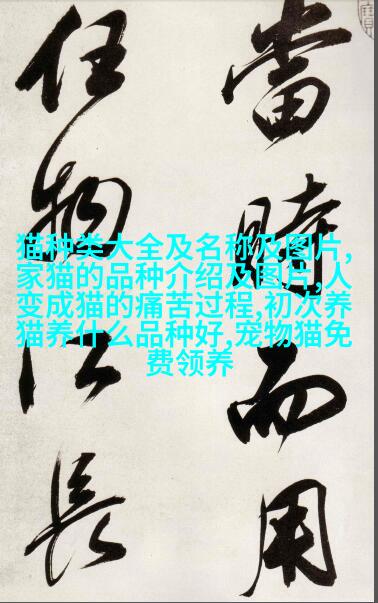 當時而用
任物長
猫种类大全及名称及图片,
家猫的品种介绍及图片,人
变成猫的痛苦过程,初次养
猫养什么品种好,宠物猫免
费领养